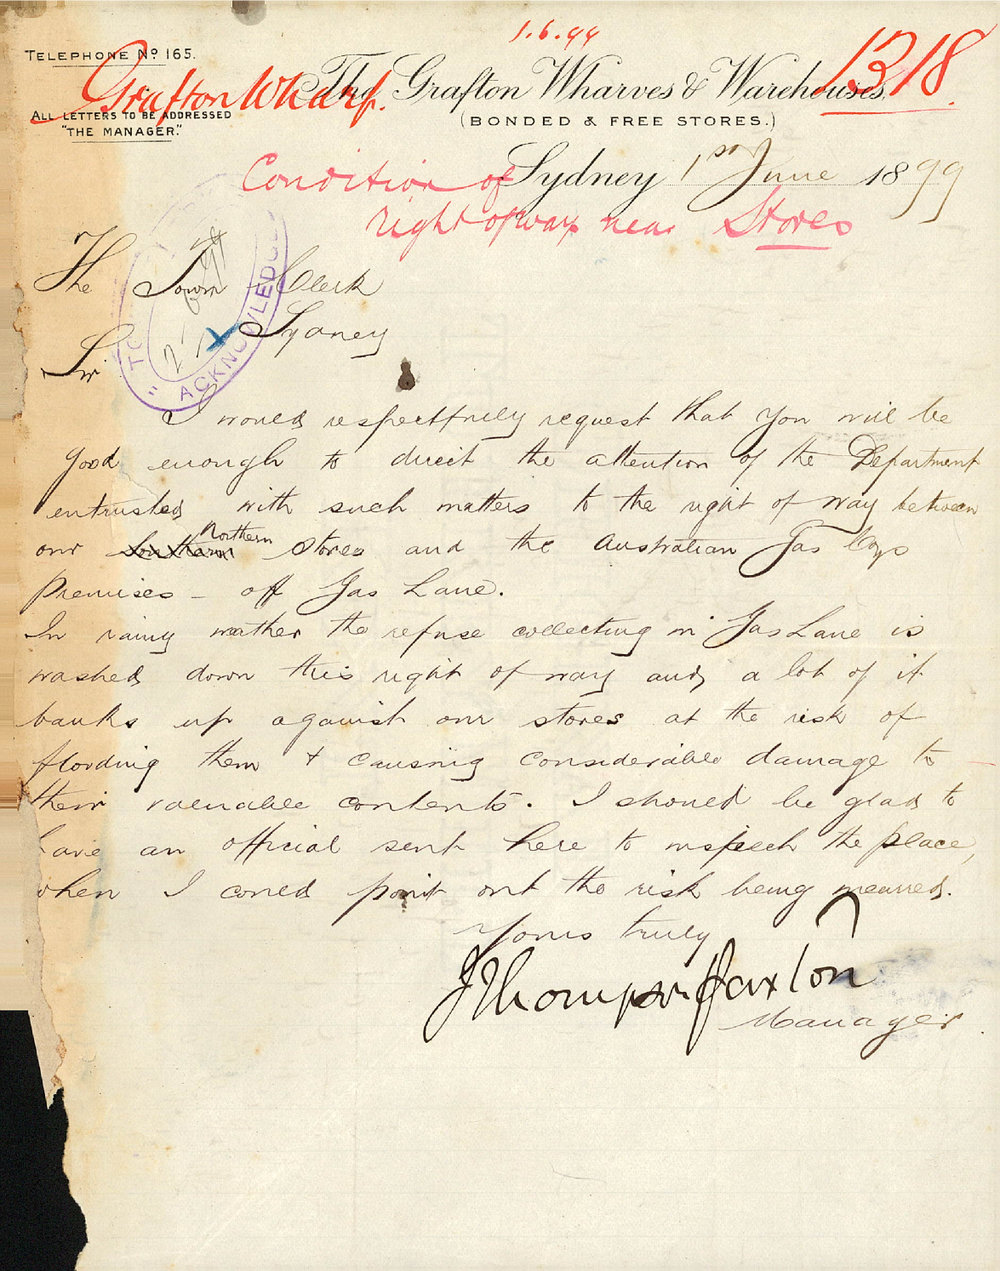 1.6.99
1318
TELEPHONE No 165.
Grafton Wharf.
The Grafton Wharves & Warehouses.
ALL LETTERS TO BE ADDRESSED
"THE MANAGER."
(BONDED & FREE STORES.)
Sydney 1st June 1899
Condition of
right of way near Stores
The Town Clerk
Sydney
Sir
" ACKNOWLEDGED
I would respectfully request that you will be
good enough to direct the attention of the Department
entrusted with such matters to the right of way between
our Southern Northern Stores and the Australian Gas Coys
Premises - off Gas Lane.
In rainy weather the refuse collecting in Gas Lane is
washed down this right of way and a lot of it
banks up against our stores at the risk of
flooding them & causing considerable damage to
their valuable contents. I should be glad to
have an official sent here to inspect the place,
when I could point out the risk being incurred.
Yours truly
J Thompson Paxton
Manager